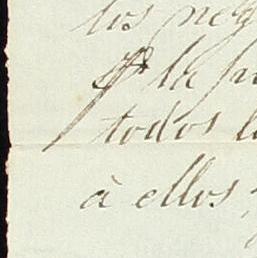 los neg
la p
todos l
à ellos